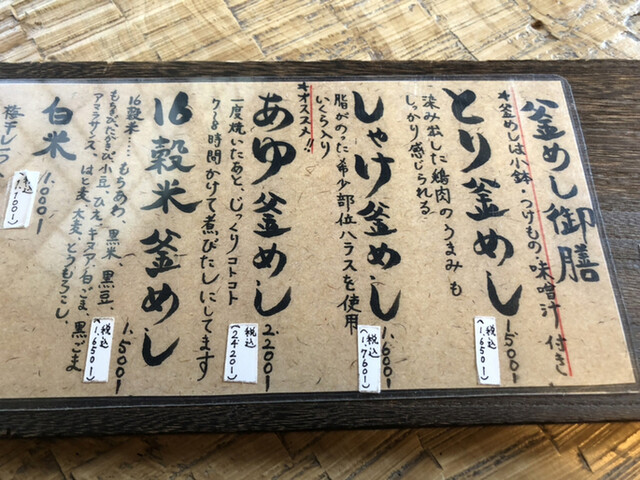 釜めし御膳
*釜めしは小鉢・つけもの 味噌汁 付き
とり釜めし 1,500-
(税込 1,650-)
染み出した鶏肉のうまみも
しっかり感じられる
しゃけ釜めし 1,600-
(税込 1,760-)
脂がのった希少部位ハラスを使用
いくら入り
*オススメ!!
あゆ釜めし 2,200-
(税込 2,420-)
一度焼いたあと、じっくりコトコト
7~8時間かけて煮びたしにしてます
16穀米釜めし 1,500-
(税込 1,650-)
16穀米……もちあわ、黒米、黒豆
もちきび、小豆、ひえ、キヌア、白ごま、黒ごま
アマランサス、はと麦、大麦、とうもろこし、
白米 1,000-
(税込 1,100-)
梅干し